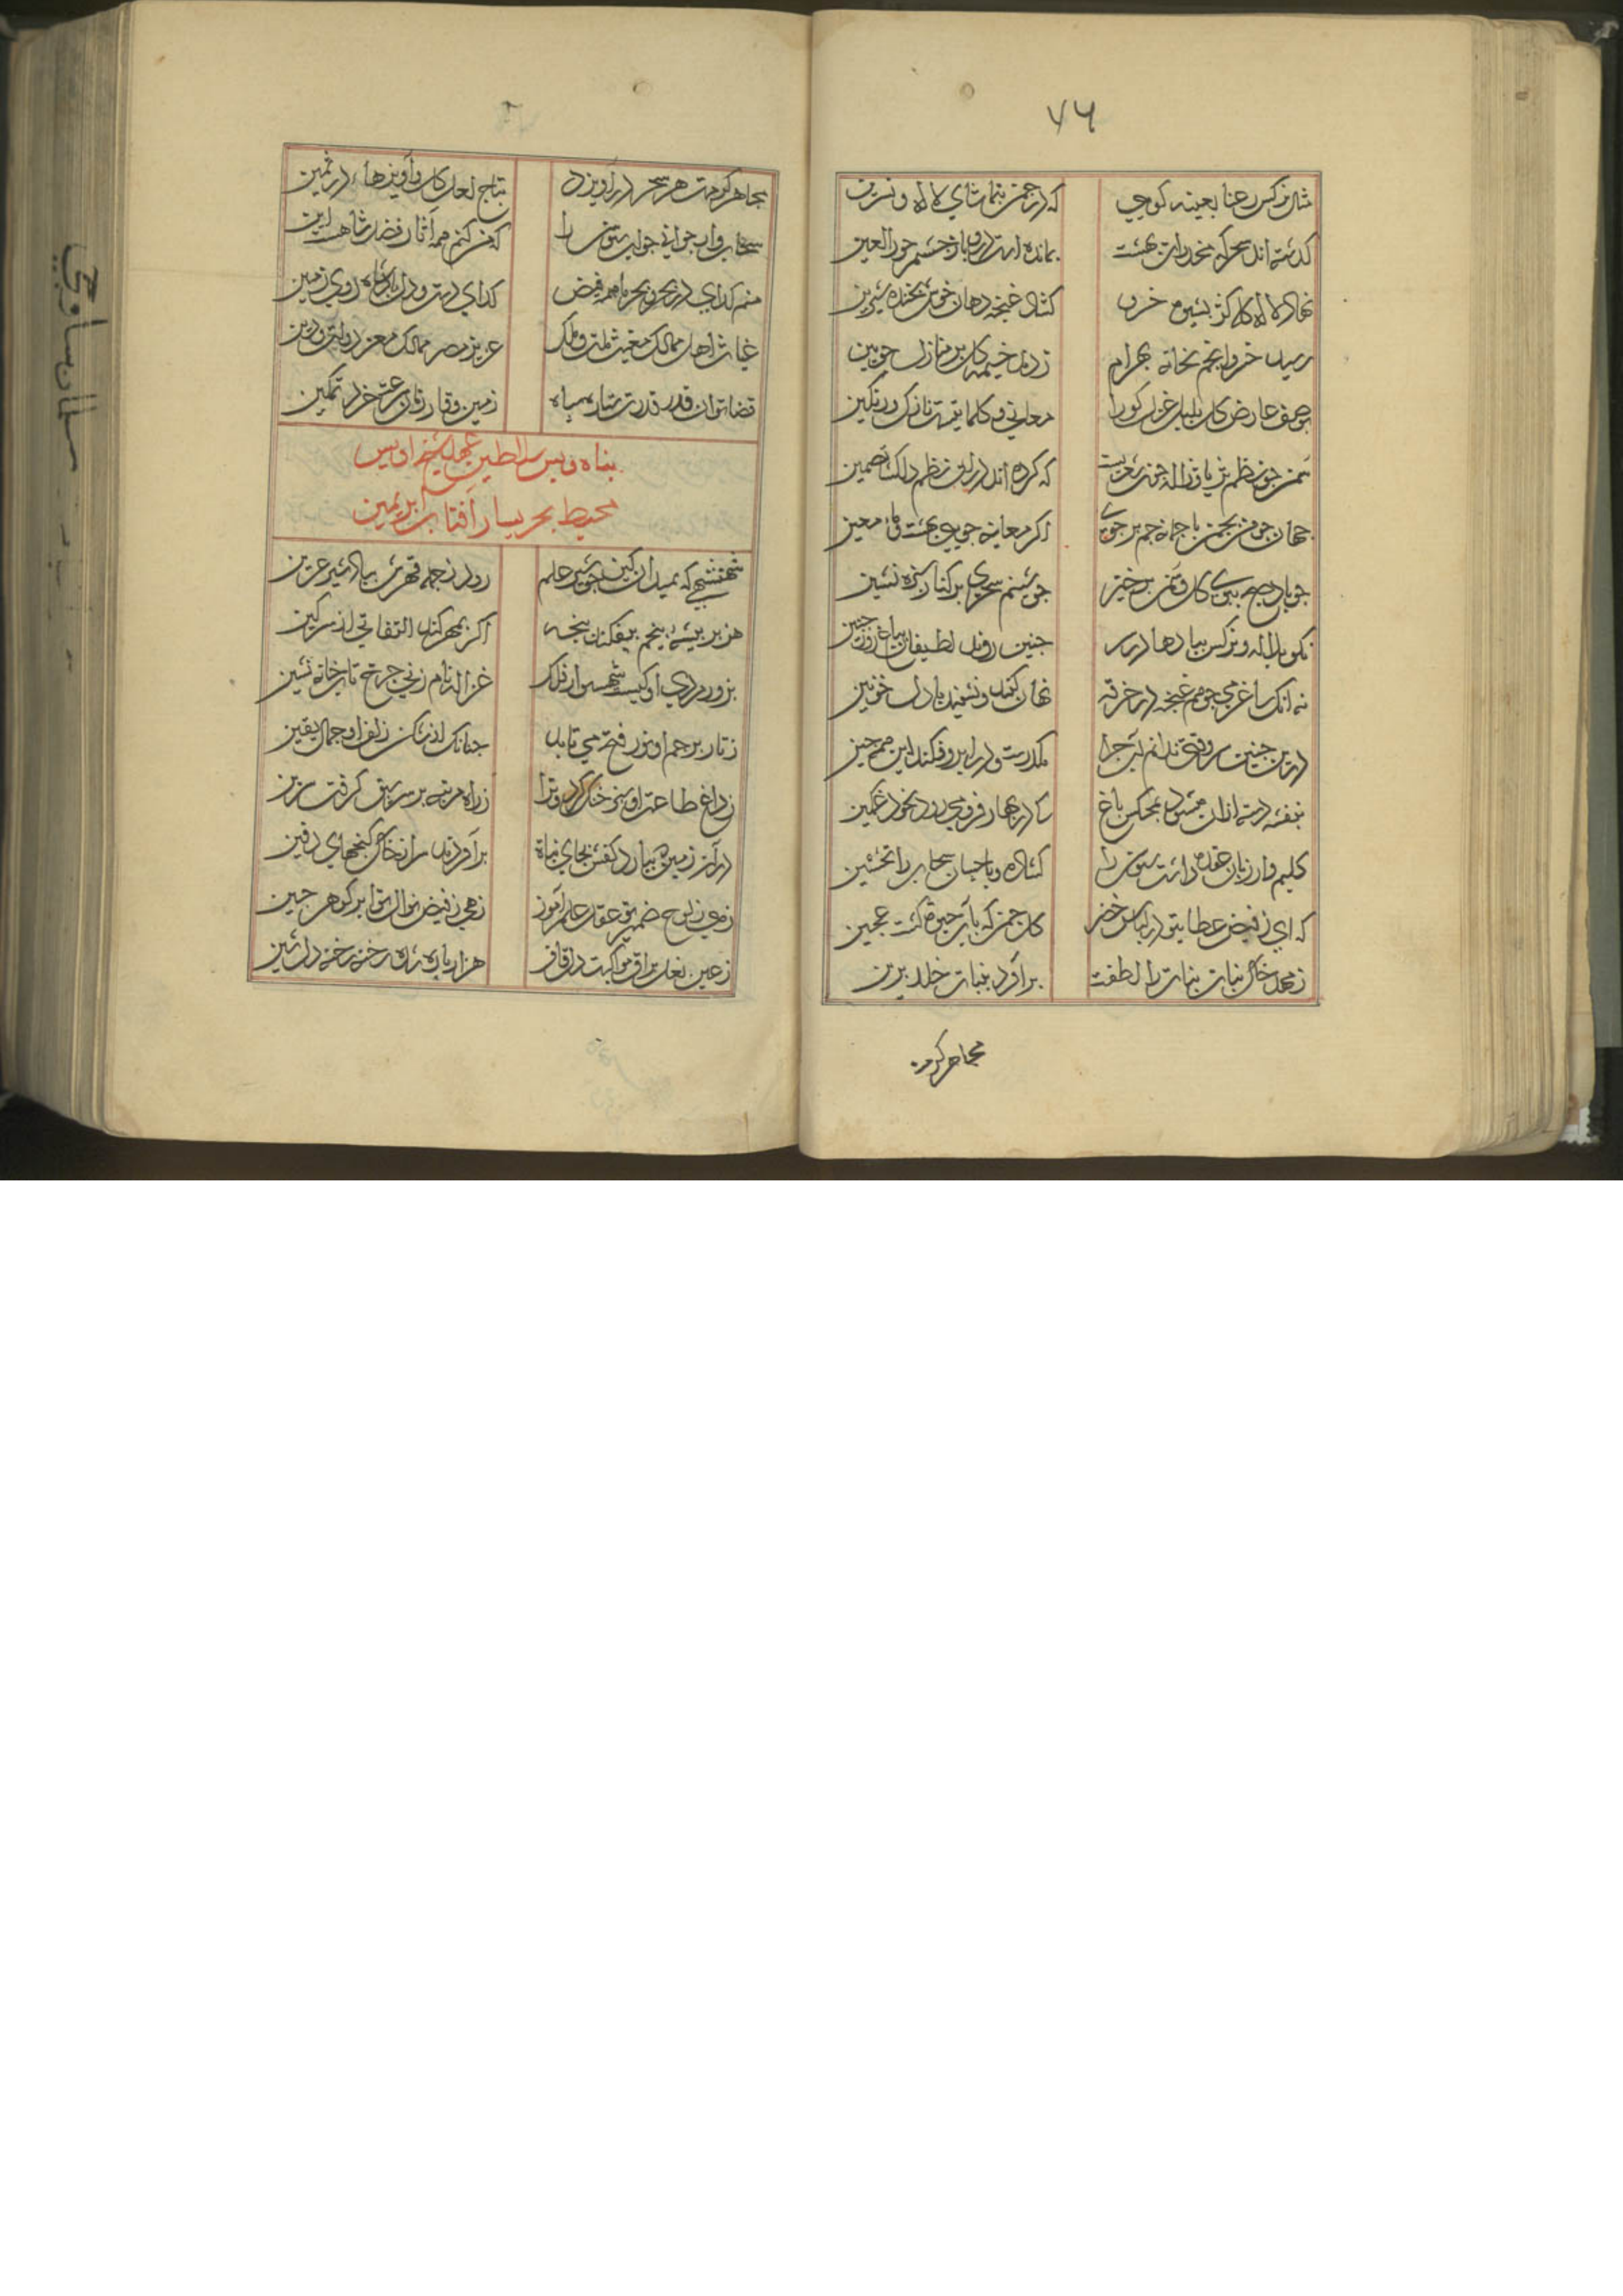 ۷۶
مثال نرکس رعنا بعینه کویی که در چمن بتماشای لاله و نسرین
کذشته اند سحرکه مخدرات بهشت بمانده است درو باز چشم حور العین
نهاد لاله کله کژ بشیوه خسرو کشاد غنچه دهان خوش بخنده شیرین
رسید خسرو انجم بخانه بهرام زدند خیمه کل بر منازل جوبین
بوصف عارض کل بلبل غزل کو را معانی و کلماتیست نازک و رنکین
سمن جو نظم ثریا و ژاله جون شعریست که کرده اند در ان نظم دلکشا تضمین
جهان جو من بچمن با جمانه جم بر جوی اکر معاینه جویی بهشت و ماء معین
جو باد صبح ببوی کل و سمن برخیز جو شبنم سحری بر کنار سبزه نشین
نکو بلاله و نرکس بیادها در سر جنین روند لطیفان بباغ روز جنین
نه انک ساغر می جو غنجه در خرقه نهان کنند و نشینند با دل خونین
درین جنین سر وقتی ندانم ابر جرا مکدرست و در ابرو فکنده این همه جین
بنفشه دسته ازان میشود بمجلس باغ که در بهار فرو می رود بخود غمکین
کلیم وار زبان عقده داشت سوسن را کشاده و با حسان سحاب را تحسین
که ای ز فیض عطایت در لباس خضر کل جمن که بآب حیوة کشت عجین
ز مهد خاک بنات نبات را لطفت برآورد بنبات خلد برین
بجاهر کرمت
بجاهر کرمت هر سحر در آویزد بتاج لعل کل و آویزها در ثمین
سحاب داد جوابی جواب سوسن را که من کنم همه آثار فضل شاهست این
منم کدای در بحر و بحر با همه فیض کدای دست و دل پادشاه روی زمین
غیاث اهل ممالک مغیث ملت و ملک عزیز مصر ممالک معز دولت و دین
قضا توان قدر قدرت ستاره سپاه زمین وقار زمان سرعت خرد تمکین
پناه و پس سلاطین عهد شیخ اویس
محیط بحر یسار آفتاب ابر یمین
شهنشهی که بمیدان کین جو شیر علم رود ز حمله قهرش بباد شیر عرین
هزبر بیشه پنجم بیفکند پنجه اکر بمهر کند التفاتی از سر کین
بزور مردی او کیست شهسوار فلک غزاله نام زنی جرخ تاب خانه نشین
ز تار برجم او نور فتح می تابد جنانک از شکن زلف او جمال یقین
ز داغ طاعت او سر خنک کردونرا ز راه مرتبه بر سر سبق کرفت سرین
در آن زمین که ببارد کفش بجای نبات برآورند سر از خاک کنجهای دفین
زهی ز لوح ضمیر تو عقل علم آموز زهی ز فیض نوال تو ابر کوهر جین
ز عین نعل براق مواکبت دل قاف هزار پاره شده رخنه رخنه دل شین
سلمان ساوجی